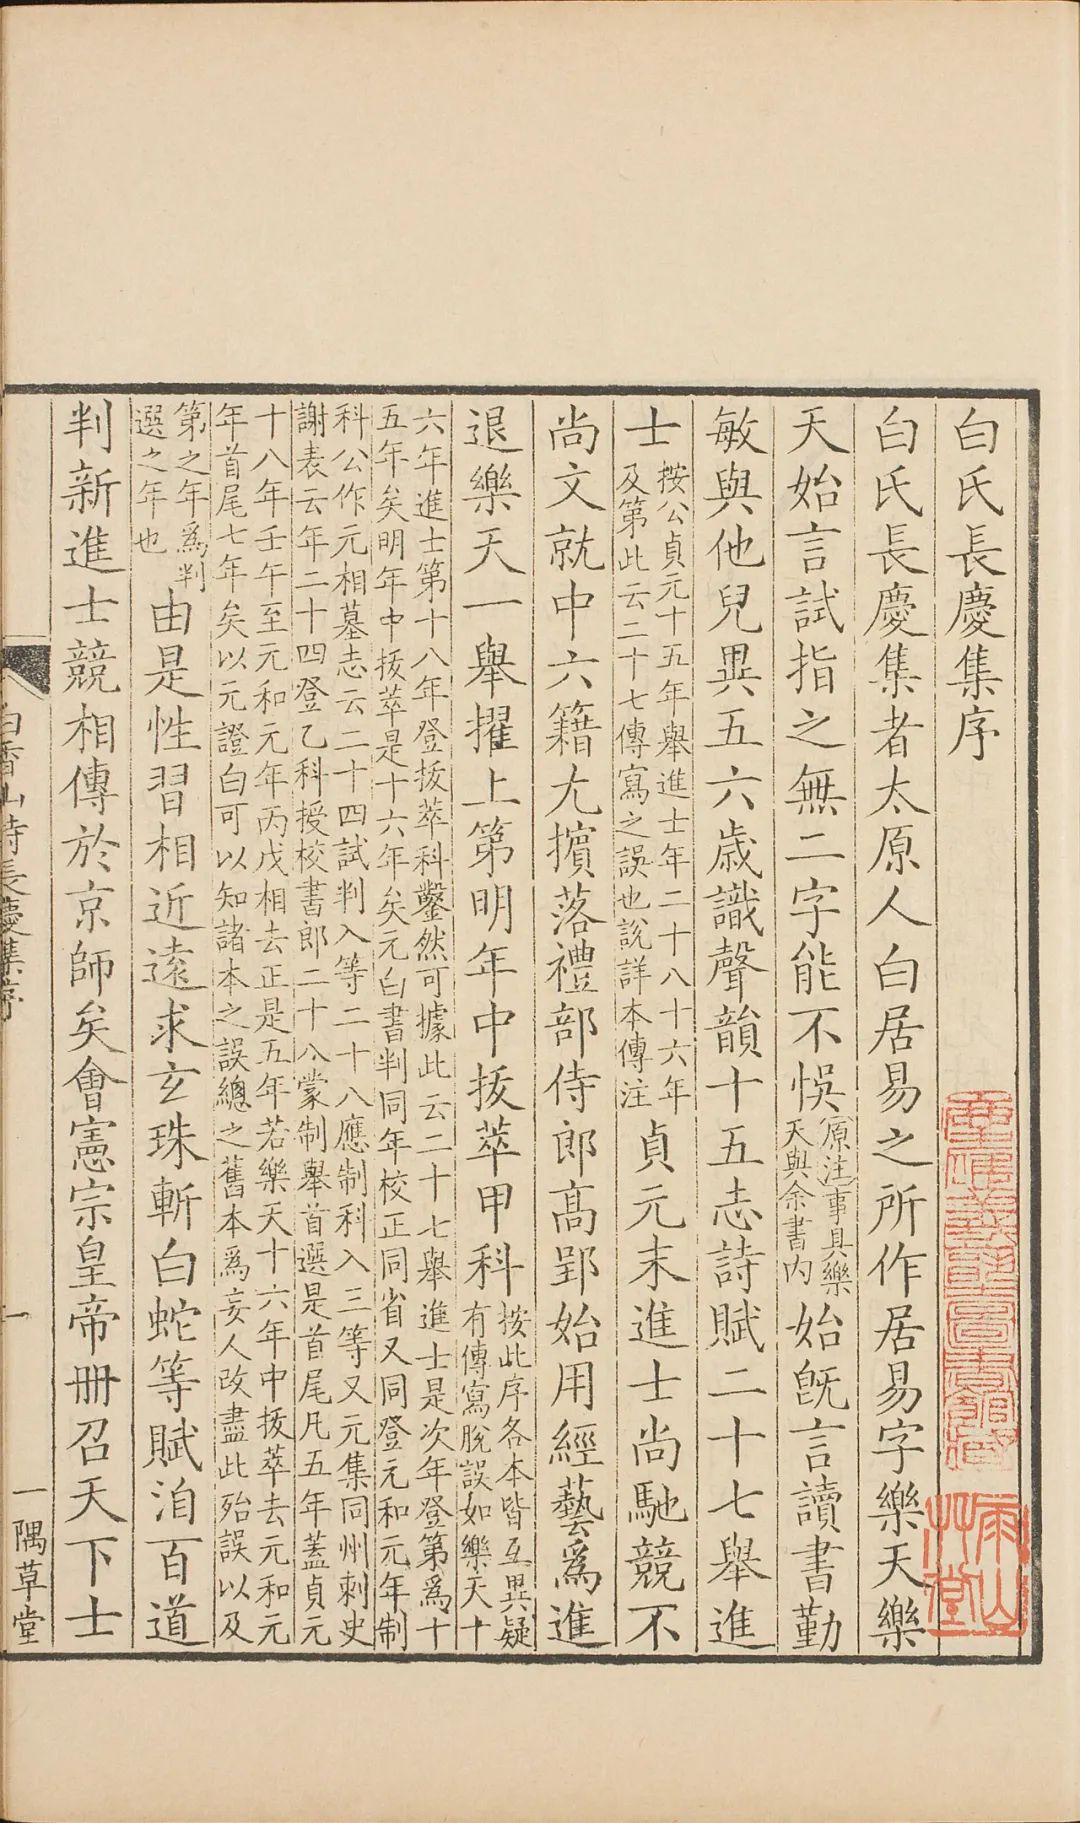 白氏長慶集序
白氏長慶集者太原人白居易之所作居易字樂天樂
天始言試指之無二字能不悞原注事具樂天與余書內始旣言讀書勤
敏與他兒異五六歲識聲韻十五志詩賦二十七舉進
士按公貞元十五年舉進士年二十八十六年及第此云二十七傳寫之誤也說詳本傳注貞元末進士尚馳競不
尚文就中六籍尤擯落禮部侍郎高郢始用經藝爲進
退樂天一舉擢上第明年中拔萃甲科按此序各本皆互異疑有傳寫脫誤如樂天十
六年進士第十八年登拔萃科鑿然可據此云二十七舉進士是次年登第爲十
五年矣明年中拔萃是十六年矣元白書判同年校正同省又同登元和元年制
科公作元相墓志云二十四試判入等二十八應制科入三等又元集同州刺史
謝表云年二十四登乙科授校書郎二十八蒙制舉首選是首尾凡五年蓋貞元
十八年壬午至元和元年丙戌相去正是五年若樂天十六年中拔萃去元和元
年首尾七年矣以元證白可以知諸本之誤總之舊本爲妄人改盡此殆誤以及
第之年爲判選之年也由是性習相近遠求玄珠斬白蛇等賦洎百道
判新進士競相傳於京師矣會憲宗皇帝冊召天下士
白香山詩長慶集序 一 一隅草堂
雨山草堂